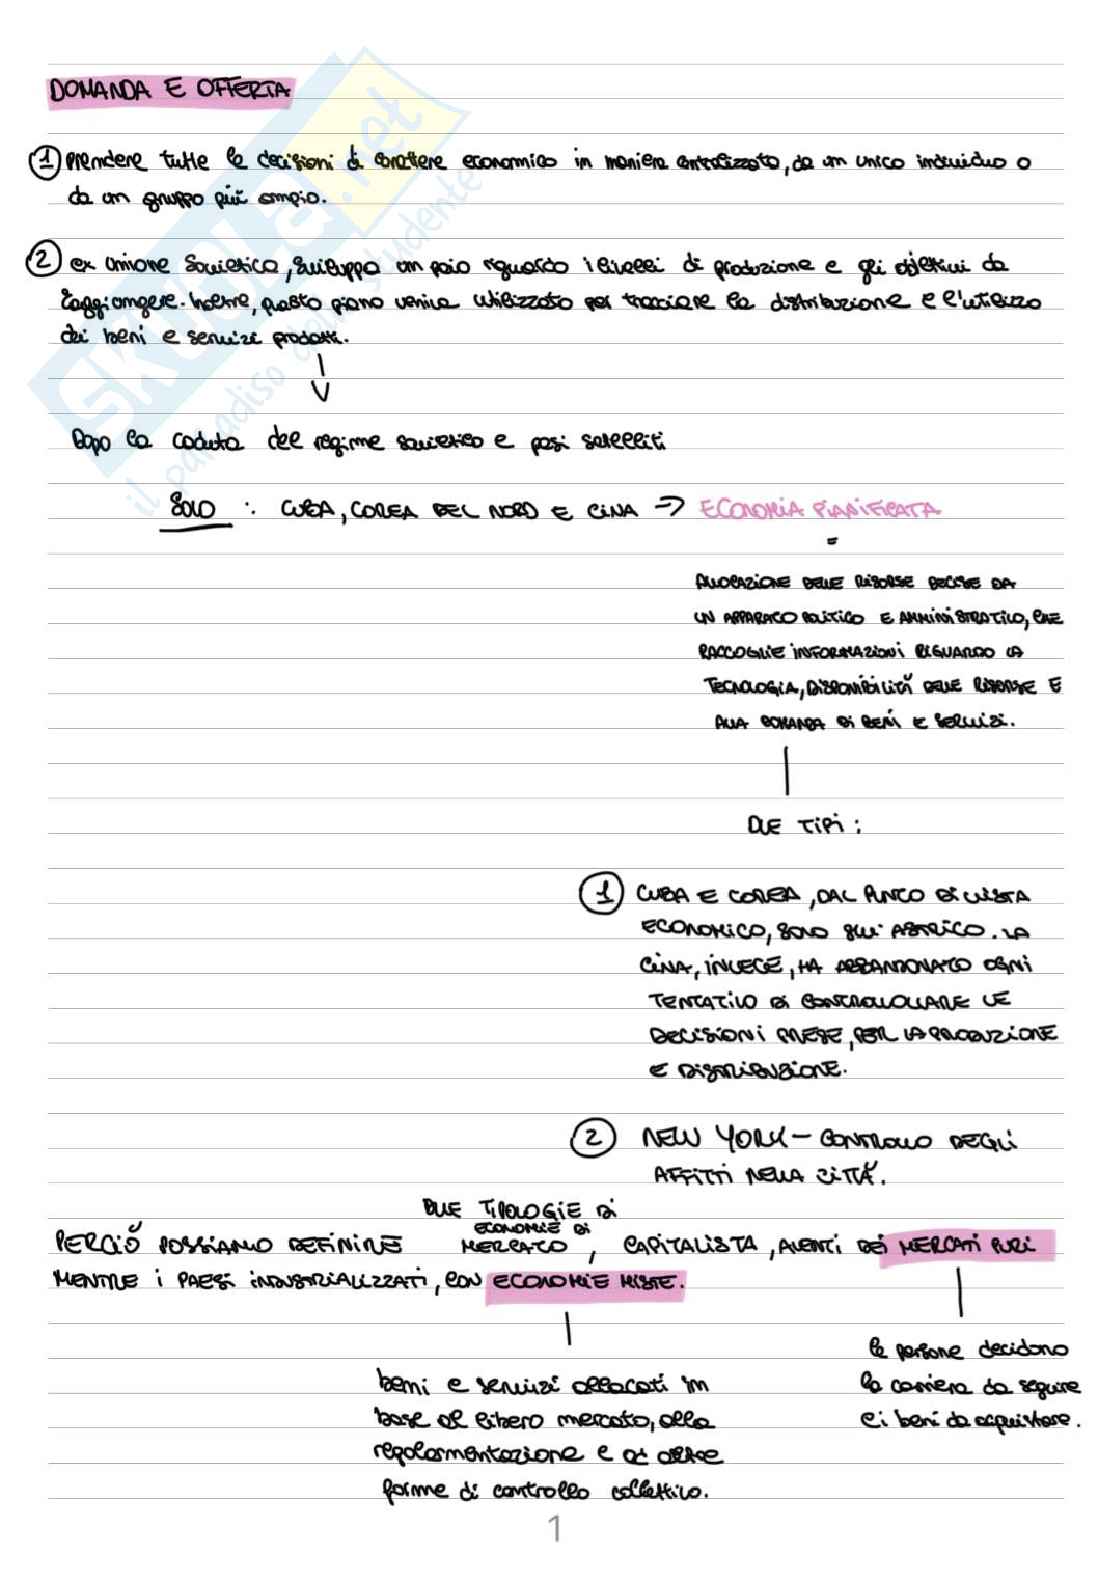 DOMANDA E OFFERTA
1 Prendere tutte le decisioni di carattere economico in maniera centralizzata, da un unico individuo o
da un gruppo più ampio.
2 ex Unione Sovietica, sviluppa un paio riguardo i livelli di produzione e gli obiettivi da
raggiungere. Inoltre, questo piano veniva utilizzato per tracciare la distribuzione e l'utilizzo
dei beni e servizi prodotti.
Dopo la caduta del regime sovietico e paesi satelliti
SOLO : CUBA, COREA DEL NORD E CINA → ECONOMIA PIANIFICATA
=
ALLOCAZIONE DELLE RISORSE DECISE DA
UN APPARATO POLITICO E AMMINISTRATIVO, CHE
RACCOGLIE INFORMAZIONI RIGUARDO LA
TECNOLOGIA, DISPONIBILITÀ DELLE RISORSE E
ALLA DOMANDA DI BENI E SERVIZI.
DUE TIPI :
1 CUBA E COREA, DAL PUNTO DI VISTA
ECONOMICO, SONO SULL' ASTRICO. LA
CINA, INVECE, HA ABBANDONATO OGNI
TENTATIVO DI CONTROLLOLLARE LE
DECISIONI PRESE, PER LA PRODUZIONE
E DISTRIBUZIONE.
2 NEW YORK - CONTROLLO DEGLI
AFFITTI NELLA CITTÀ.
DUE TIPOLOGIE DI
ECONOMIE DI
PERCIÒ POSSIAMO DEFINIRE MERCATO, CAPITALISTA, AVENTI DEI MERCATI PURI
MENTRE I PAESI INDUSTRIALIZZATI, CON ECONOMIE MISTE.
le persone decidono
la carriera da seguire
e i beni da acquistare.
beni e servizi allocati in
base al libero mercato, alla
regolarmentazione e ad altre
forme di controllo collettivo.
1
SKUOLA.net
il paradiso dello studente